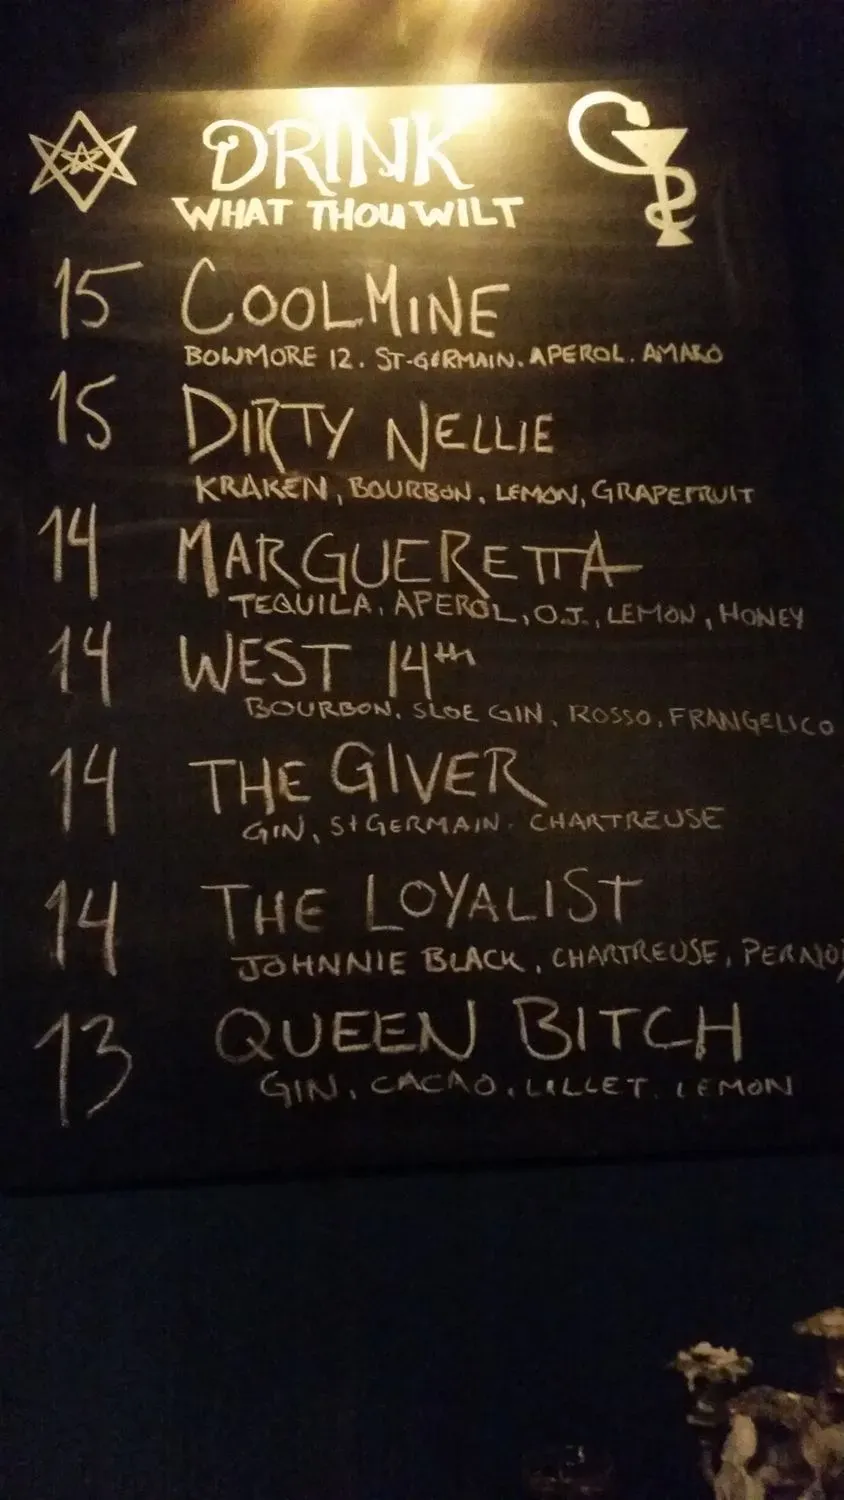 DRINK
WHAT THOU WILT
15 COOLMINE
BOWMORE 12. ST-GERMAIN. APEROL. AMARO
15 DIRTY NELLIE
KRAKEN, BOURBON, LEMON, GRAPEFRUIT
14 MARGUERETTA
TEQUILA, APEROL, O.J., LEMON, HONEY
14 WEST 14th
BOURBON, SLOE GIN, ROSSO, FRANGELICO
14 THE GIVER
GIN, St GERMAIN. CHARTREUSE
14 THE LOYALIST
JOHNNIE BLACK, CHARTREUSE, PERNOD
13 QUEEN BITCH
GIN, CACAO, LILLET. LEMON